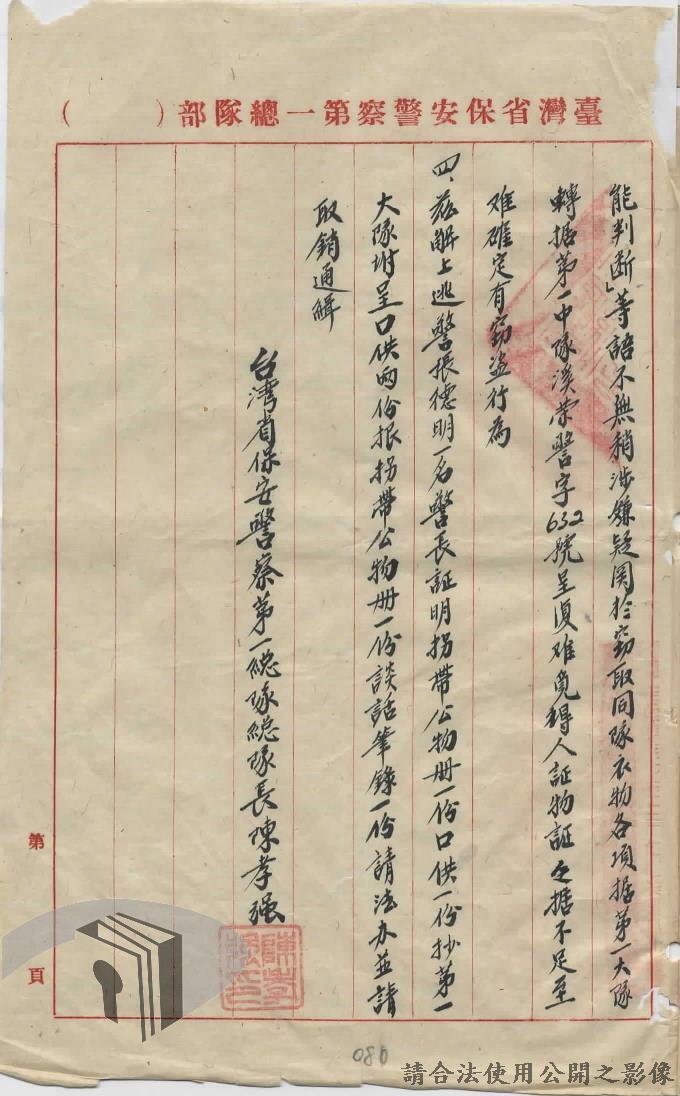 臺灣省保安警察第一總隊部（　　）
能判断」等語不無稍涉嫌疑関於窃取同隊衣物各項据第一大隊
轉据第一中隊溪荣警字632號呈復难覓得人証物証之据不足至
难確定有窃盗行為
四、兹解上逃警張德明一名警長証明拐帶公物册一份口供一份抄第一
大隊坿呈口供两份报拐帶公物册一份談話筆錄一份請法办並請
取銷通緝
台湾省保安警察第一總隊總隊長陳孝强
第　頁
080
請合法使用公開之影像